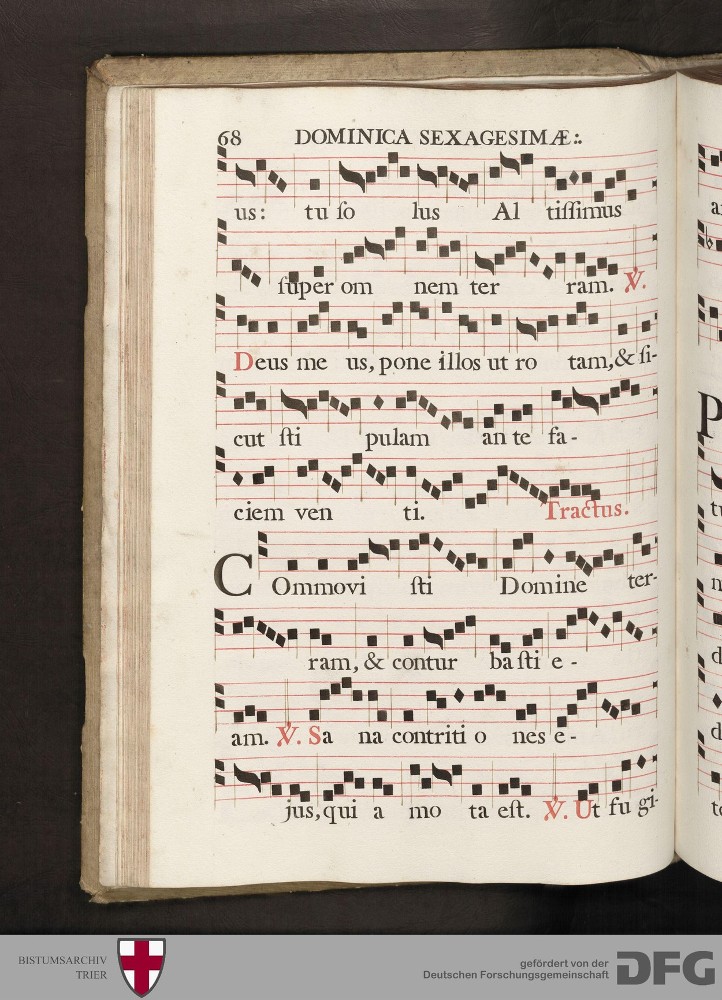 68 DOMINICA SEXAGESIMÆ:.
us: tu ſo lus Al tiſſimus
ſuper om nem ter ram. ℣.
Deus me us, pone illos ut ro tam, & ſi-
cut ſti pulam an te fa-
ciem ven ti. Tractus.
COmmovi ſti Domine ter-
ram, & contur ba ſti e-
am. ℣. Sa na contriti o nes e-
jus, qui a mo ta eſt. ℣. Ut fu gi-
BISTUMSARCHIV
TRIER
gefördert von der
Deutschen Forschungsgemeinschaft
DFG